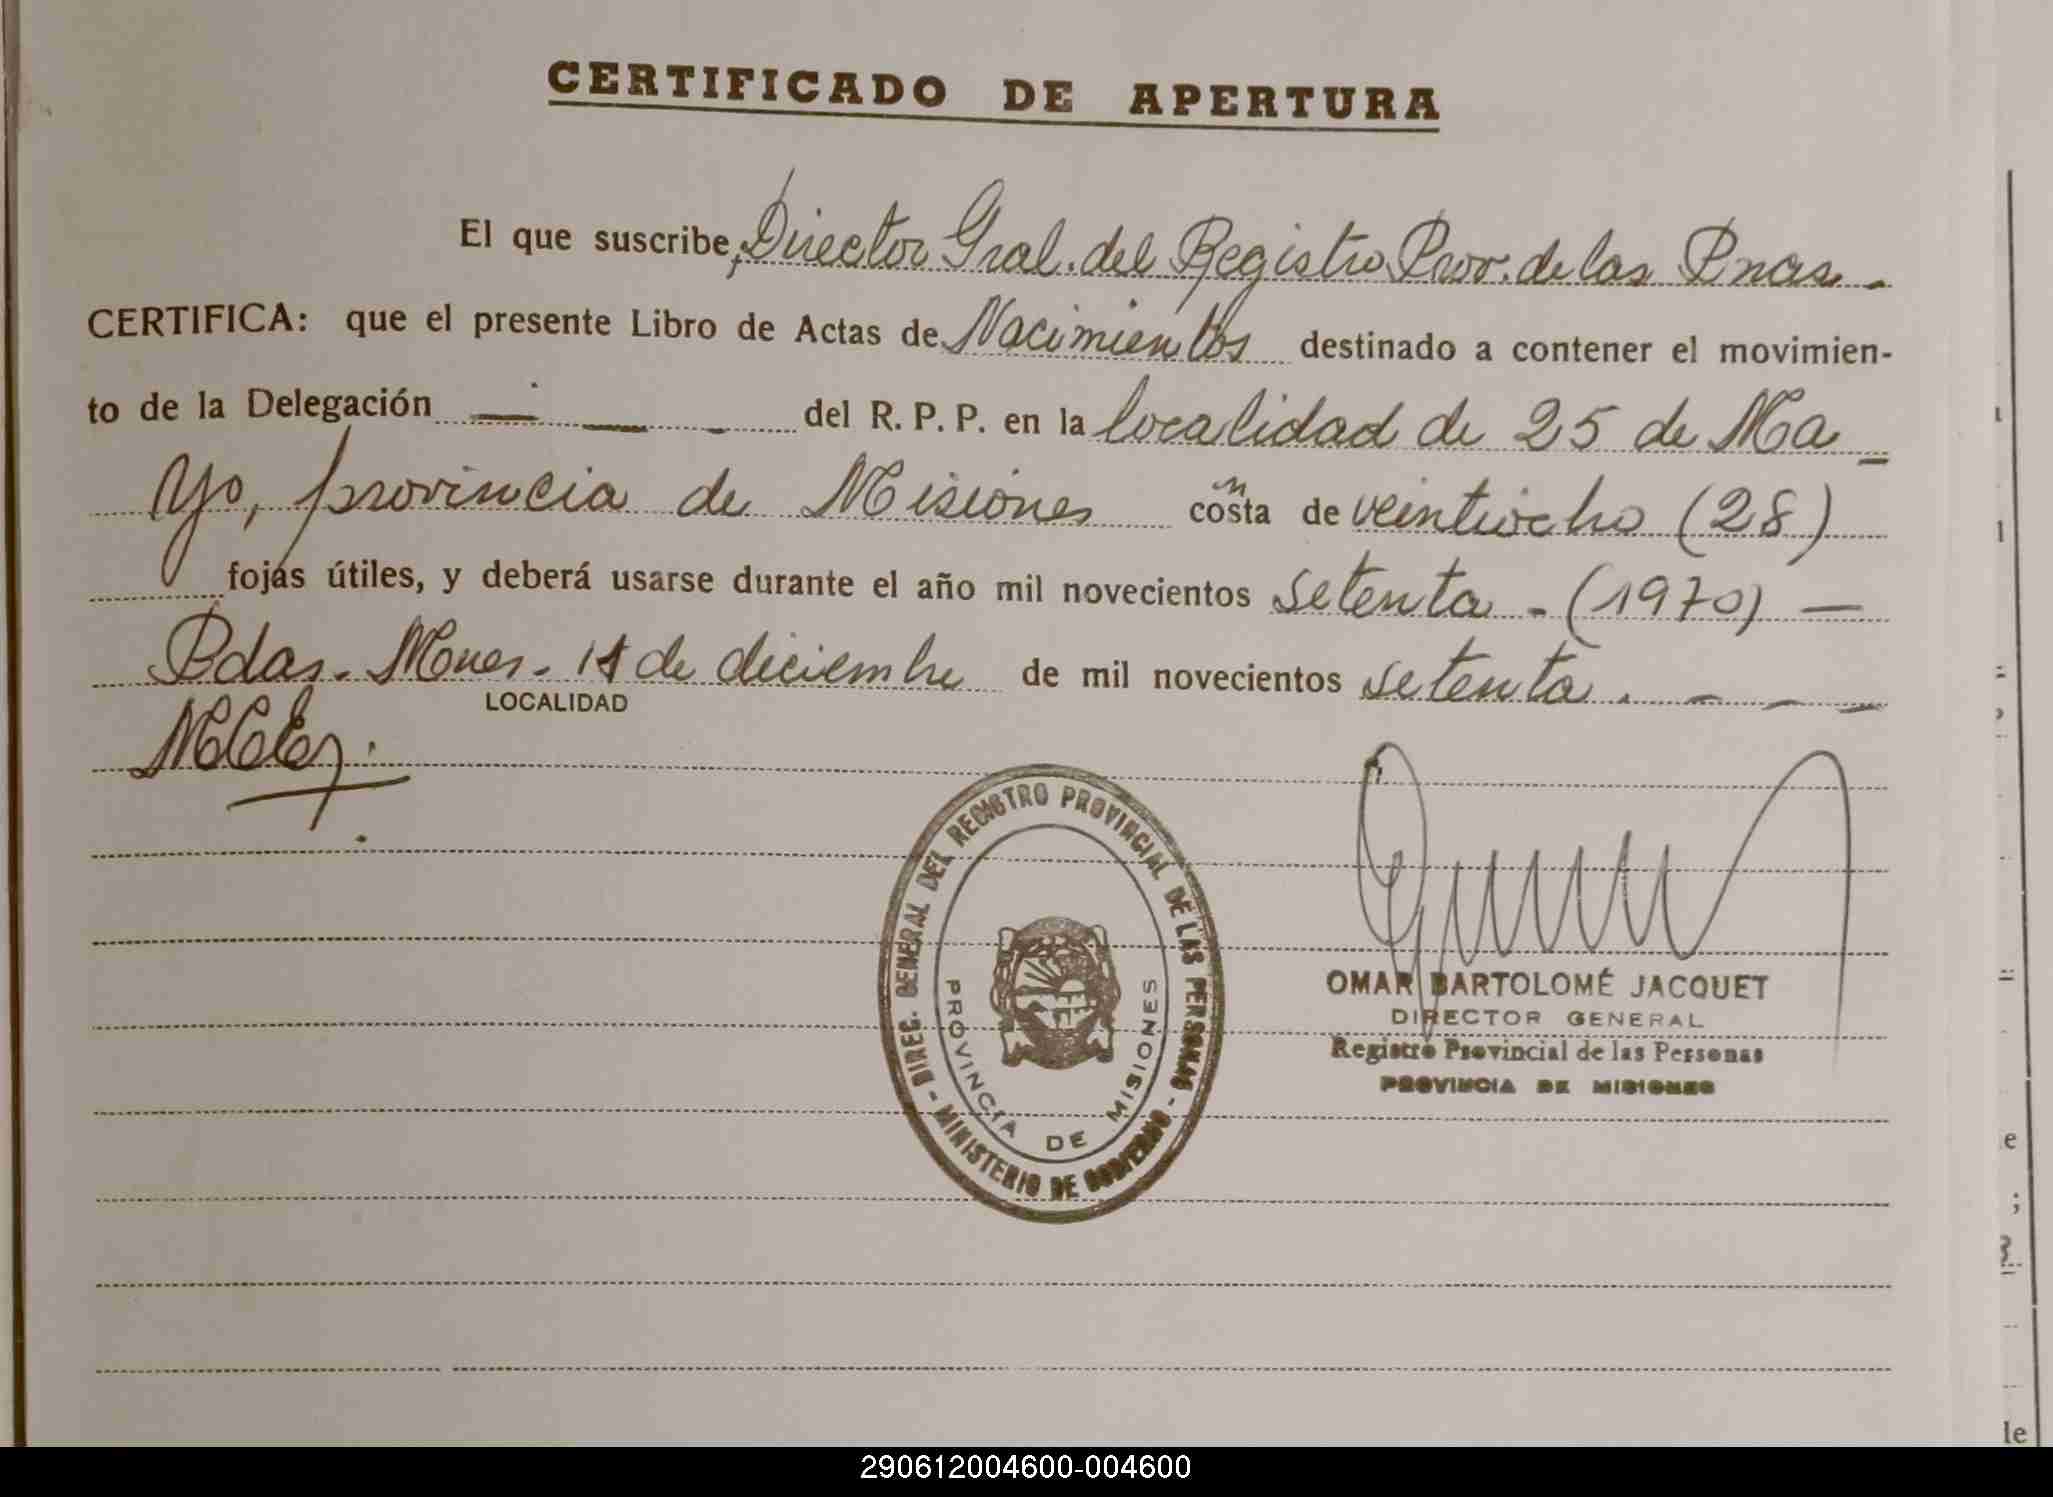 CERTIFICADO DE APERTURA
El que suscribe, Director Gral. del Registro Prov. de las Pnas. -
CERTIFICA: que el presente Libro de Actas de Nacimientos destinado a contener el movimien-
to de la Delegación — — - del R. P. P. en la localidad de 25 de Ma-
yo, provincia de Misiones consta de veintiocho (28)
fojas útiles, y deberá usarse durante el año mil novecientos setenta - (1970) —
Pdas. Mnes. de diciembre de mil novecientos setenta. - - -
LOCALIDAD
DIREC. GENERAL DEL REGISTRO PROVINCIAL DE LAS PERSONAS - MINISTERIO DE GOBIERNO -
PROVINCIA DE MISIONES
OMAR BARTOLOMÉ JACQUET
DIRECTOR GENERAL
Registro Provincial de las Personas
PROVINCIA DE MISIONES
290612004600-004600